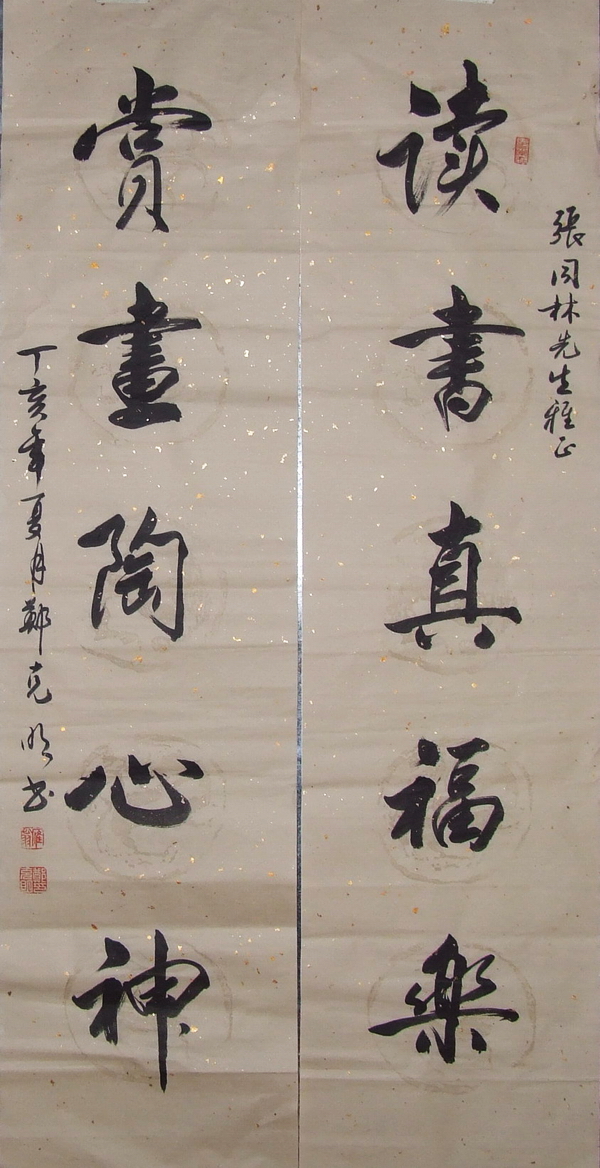 張閃林先生雅正
读書真福樂
賞畫陶心神
丁亥年夏月鄭克明書